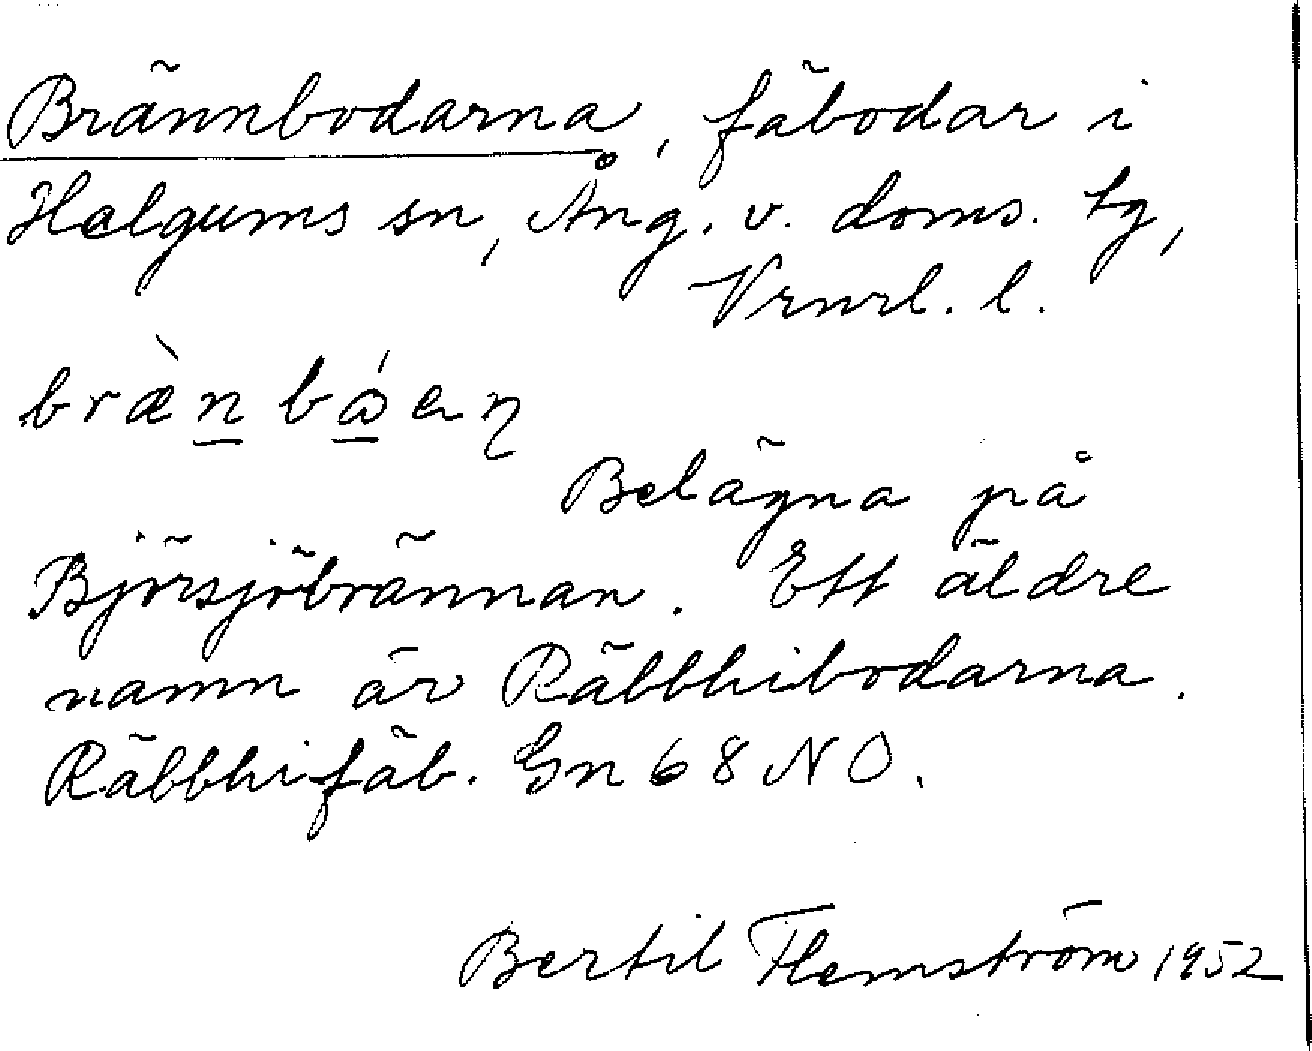 Brännbodarna, fäbodar i
Helgums sn, Ång. v. doms. tg,
Vrnrl. l.
bræ̀n̲ bɷ̲́aɳ
Belägna på
Björsjöbrännan. Ett äldre
namn är Räbbhibodarna.
Räbbhifäb. Gn 68 NO.
Bertil Flemström 1952